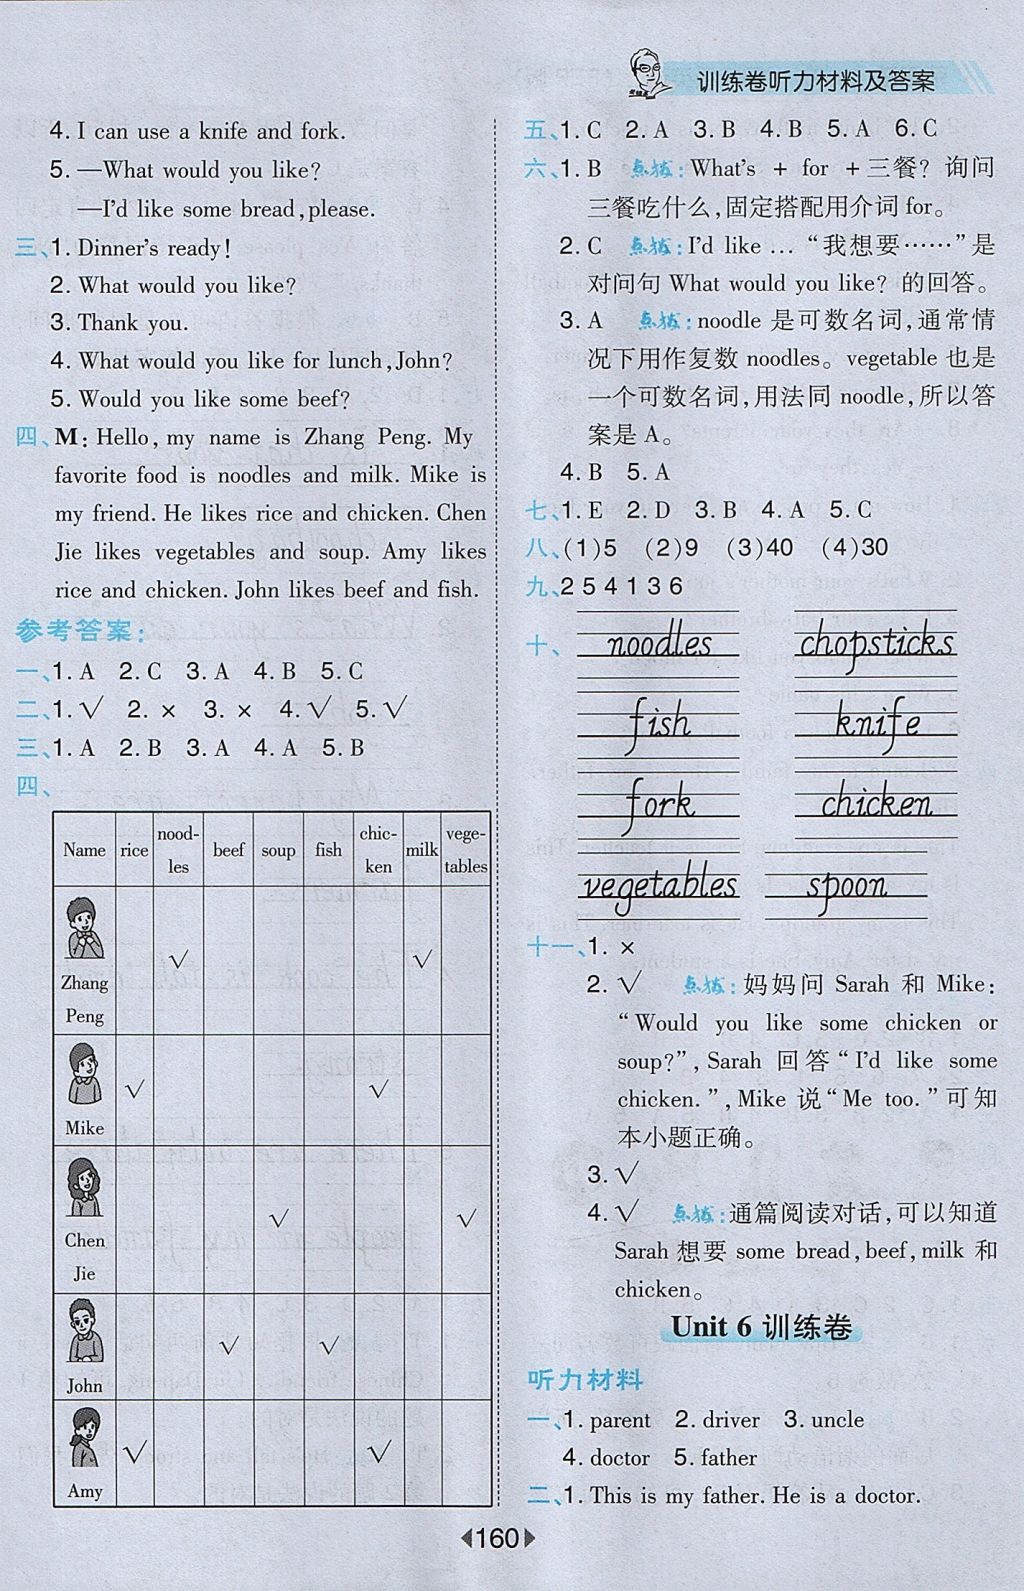 训练卷听力材料及答案
4. I can use a knife and fork.
5. —What would you like?
—I'd like some bread,please.
三、1. Dinner's ready!
2. What would you like?
3. Thank you.
4. What would you like for lunch,John?
5. Would you like some beef?
四、M: Hello, my name is Zhang Peng. My
favorite food is noodles and milk. Mike is
my friend. He likes rice and chicken. Chen
Jie likes vegetables and soup. Amy likes
rice and chicken. John likes beef and fish.
参考答案:
一、1. A 2. C 3. A 4. B 5. C
二、1. √ 2. × 3. × 4. √ 5. √
三、1. A 2. B 3. A 4. A 5. B
四、
Name rice nood-les beef soup fish chic-ken milk vege-tables
Zhang Peng √ √
Mike √ √
Chen Jie √ √
John √ √
Amy √ √
五、1. C 2. A 3. B 4. B 5. A 6. C
六、1. B 点拨:What's + for +三餐? 询问
三餐吃什么,固定搭配用介词for。
2. C 点拨:I'd like … “我想要……”是
对问句 What would you like? 的回答。
3. A 点拨:noodle 是可数名词,通常情
况下用作复数 noodles。vegetable 也是
一个可数名词,用法同 noodle,所以答
案是 A。
4. B 5. A
七、1. E 2. D 3. B 4. A 5. C
八、(1)5 (2)9 (3)40 (4)30
九、2 5 4 1 3 6
十、noodles chopsticks
fish knife
fork chicken
vegetables spoon
十一、1. ×
2. √ 点拨:妈妈问 Sarah 和 Mike:
“Would you like some chicken or
soup?”, Sarah 回答“I'd like some
chicken.”, Mike 说“Me too.”可知
本小题正确。
3. √
4. √ 点拨:通篇阅读对话,可以知道
Sarah 想要 some bread,beef,milk 和
chicken。
Unit 6 训练卷
听力材料
一、1. parent 2. driver 3. uncle
4. doctor 5. father
二、1. This is my father. He is a doctor.
160